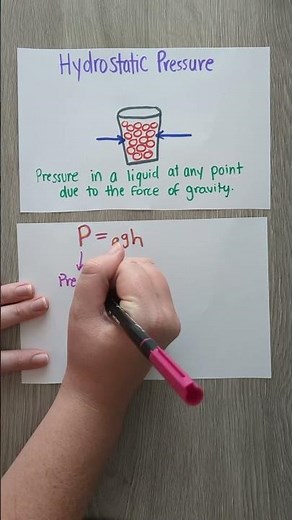 Hydrostatic Pressure
Pressure in a liquid at any point
due to the force of gravity.
P = ρgh
Pre